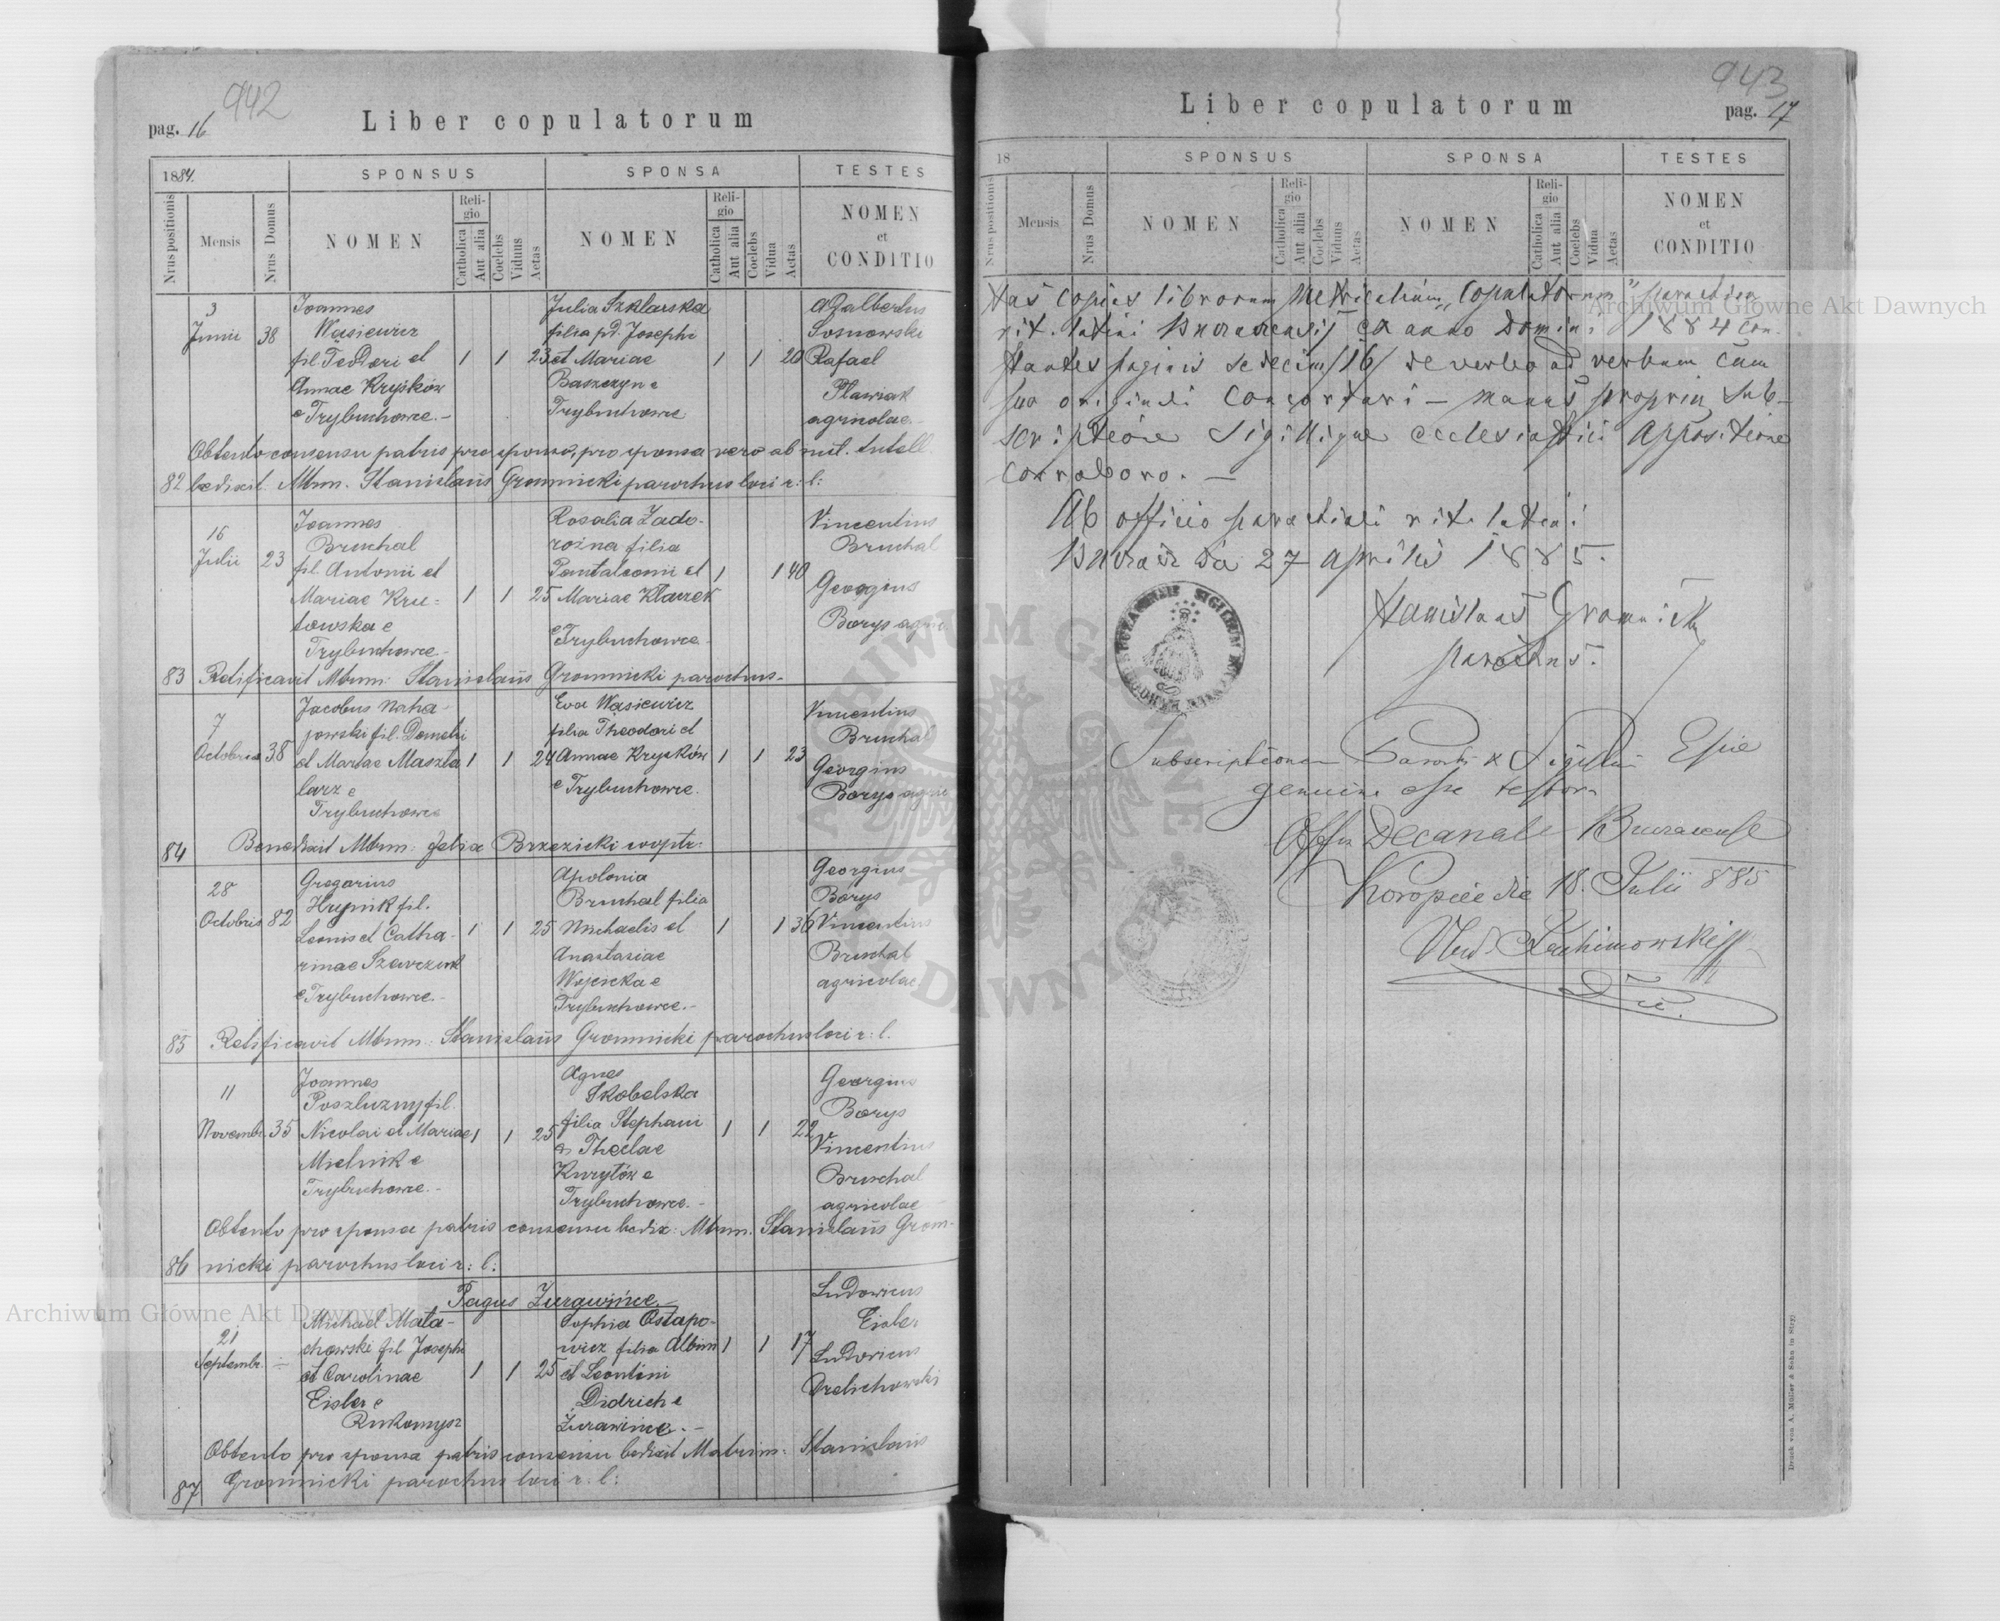 942
pag. 16
Liber copulatorum
1884.
SPONSUS
SPONSA
TESTES
Nrus positionis
Mensis
Nrus Domus
NOMEN
Religio
Catholica
Aut alia
Coelebs
Viduus
Aetas
NOMEN
Religio
Catholica
Aut alia
Coelebs
Vidua
Aetas
NOMEN
et
CONDITIO
3
Junii 38
Joannes
Wąsiewicz
fil. Teodori et
Annae Kryśków
e Trybuchowce.-
1 1 23
Julia Szklarska
filia pd. Josephi
et Mariae
Baszczyn e
Trybuchowce
1 1 20
Adalbertus
Sosnowski
Rafael
Pławiak
agricolae.
Obtento consensu patris pro sponso, pro sponsa vero ab
82 bedixit Mtrm. Stanislaus Gromnicki parochus loci r: l:
16
Julii 23
Joannes
Bruchal
fil. Antonii et
Mariae Kru=
towska e
Trybuchowce.-
1 1 25
Rosalia Zado-
rożna filia
Pantaleonii et
Mariae Kłaczek
e Trybuchowce.
1 1 40
Vincentius
Bruchal
Georgius
Borys
83 Ratificavit Mtrm: Stanislaus Gromnicki parochus.
7
Octobris 38
Jacobus Naha-
jowski fil. Demetri
et Mariae Maszta
larz e
Trybuchowce
1 1 24
Eva Wąsiewicz
filia Theodori et
Annae Kryśków
e Trybuchowce.
1 1 23
Vincentius
Bruchal
Georgius
Borys
84 Benedixit Mtrm: Felix Brzezicki cooptr:
28
Octobris 82
Gregorius
Hupnik fil.
Leonis et Catha-
rinae Szewczuk
e Trybuchowce.-
1 1 25
Apolonia
Bruchal filia
Michaelis et
Anastasiae
Wojcicka e
Trybuchowce.-
1 1 36
Georgius
Borys
Vincentius
Bruchal
agricolae
85 Ratificavit Mtrm: Stanislaus Gromnicki parochus loci r: l.
11
Novembr. 35
Joannes
Poszluzny fil.
Nicolai et Mariae
Mielnik e
Trybuchowce.-
1 1 25
Agnes
Skobelska
filia Stephani
et Theclae
Kuryłów e
Trybuchowce.-
1 1 22
Georgius
Borys
Vincentius
Bruchal
agricolae
Obtento pro sponsa patris consensu bedix: Mtrm. Stanislaus Grom-
86 nicki parochus loci r: l:
Pagus Żurawińce.
21
Septembr. ÷
Michael Mala-
chowski fil Josephi
et Carolinae
Eisler e
Rukomysz
1 1 25
Sophia Ostapo-
wicz filia Albini
et Leontini
Didrich e
Żurawińce.-
1 1 17
Ludovicus
Eisler
Ludovicus
Drelichowski
Obtento pro sponsa patris consensu bedixit Matrim: Stanislaus
87 Gromnicki parochus loci r: l:
943
Liber copulatorum
pag. 17
18
SPONSUS
SPONSA
TESTES
Nrus positionis
Mensis
Nrus Domus
NOMEN
Religio
Catholica
Aut alia
Coelebs
Viduus
Aetas
NOMEN
Religio
Catholica
Aut alia
Coelebs
Vidua
Aetas
NOMEN
et
CONDITIO
Has copias librorum Metricalium "Copulatorum" parochiae
rit. latini Buczacensis ex anno Domini 1884 con-
stantes paginis sedecim /16/ de verbo ad verbum cum
suo originali concordari – manus propria sub-
scriptione sigillique ecclesiastici appositione
corroboro.—
Ab officio parochiali rit. latini
Buczacz die 27 aprilis 1885.
Stanislaus Gromnicki
parochus.
Subscriptionem Parochi & Sigillum Eccae
genuina esse testor
Offm Decanale Buczacense
Koropiec die 18. Julii 885
Archiwum Główne Akt Dawnych
Archiwum Główne Akt Dawnych
ARCHIWUM GŁÓWNE AKT DAWNYCH
Druck von A. Müller & Sohn in Stryj